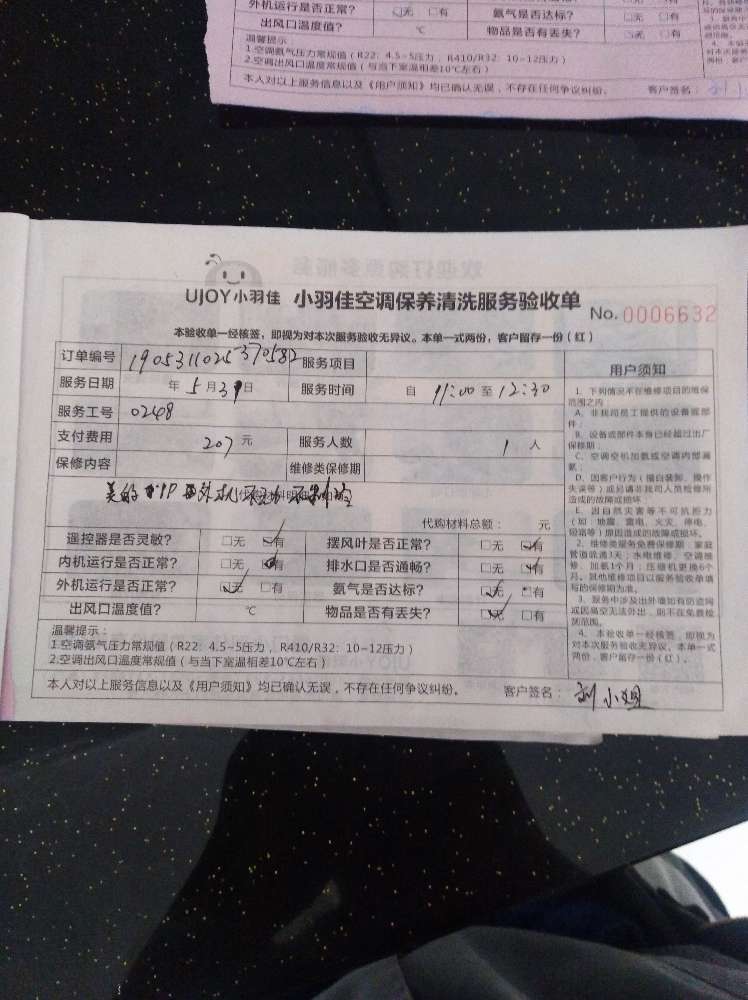 外机运行是否正常? ☑无 □有 氨气是否达标? □无 □有
出风口温度值? ℃ 物品是否有丢失? □无 □有
温馨提示
1.空调氨气压力常规值(R22: 4.5~5压力, R410/R32: 10~12压力)
2.空调出风口温度常规值(与当下室温相差10℃左右)
本人对以上服务信息以及《用户须知》均已确认无误,不存在任何争议纠纷。 客户签名:
UJOY小羽佳 小羽佳空调保养清洗服务验收单 No. 0006632
本验收单一经核签,即视为对本次服务验收无异议。本单一式两份,客户留存一份(红)
订单编号 1905311025370582 服务项目
服务日期 年5月31日 服务时间 自 11:00 至 12:30
服务工号 0248
支付费用 207 元 服务人数 1 人
保修内容 维修类保修期
美的 外机 不制冷
代购材料总额: 元
遥控器是否灵敏? □无 ☑有 摆风叶是否正常? □无 ☑有
内机运行是否正常? □无 ☑有 排水口是否通畅? □无 ☑有
外机运行是否正常? ☑无 □有 氨气是否达标? ☑无 □有
出风口温度值? ℃ 物品是否有丢失? ☑无 □有
温馨提示:
1.空调氨气压力常规值(R22: 4.5~5压力, R410/R32: 10~12压力)
2.空调出风口温度常规值(与当下室温相差10℃左右)
本人对以上服务信息以及《用户须知》均已确认无误,不存在任何争议纠纷。 客户签名: 刘小姐
用户须知
1、下列情况不在维修项目的维保
范围之内:
A、非我司员工提供的设备或部
件;
B、设备或部件本身已经超过出厂
保修期;
C、空调空机加氨或空调内部漏
氨;
D、因客户行为(擅自装卸、操作
失误等)或另请非我司人员检修所
造成的故障或损坏;
E、因自然灾害等不可抗拒力
(如 地震、雷电、火灾、停电、
短路等)原因造成的故障或损坏。
2、维修类服务免费保修期:家庭
管道疏通3天;水电维修、空调维
修、加氨1个月;压缩机更换6个
月。其他维修项目以服务验收单填
写的保修期为准。
3、服务中涉及出外墙如有防盗网
或因高空无法外出,则不在免费检
测范围。
4、本验收单一经核签,即视为
对本次服务验收无异议。本单一式
两份,客户留存一份(红)。